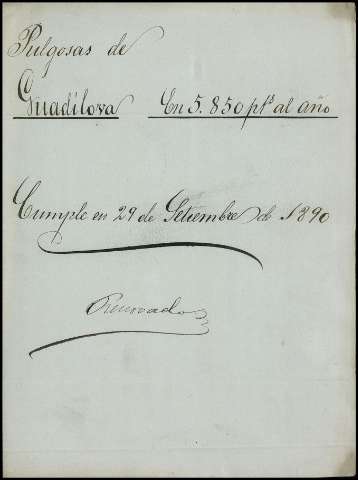 Pulgosas de
Guadilova En 5.850 pts al año
Cumple en 29 de Setiembre de 1890
Renovado